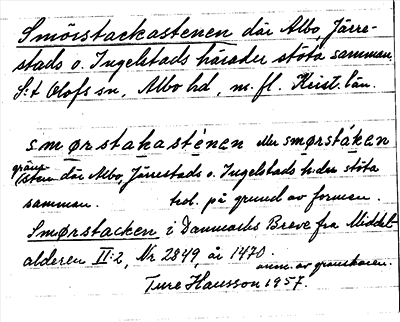 Smörstackastenen där Albo, Järre-
stads o. Ingelstads härader stöta samman.
S:t Olofs sn, Albo hd, m. fl. Krist. län.
smørstakastenen eller smørstáken
gräns-
sten där Albo, Järrestads o. Ingelstads h:der stöta
samman. trol. på grund av formen.
Smørstacken i Danmarks Breve fra Middel-
alderen II:2, Nr 2849 år 1470.
anm. av granskaren.
Ture Hansson 1957.